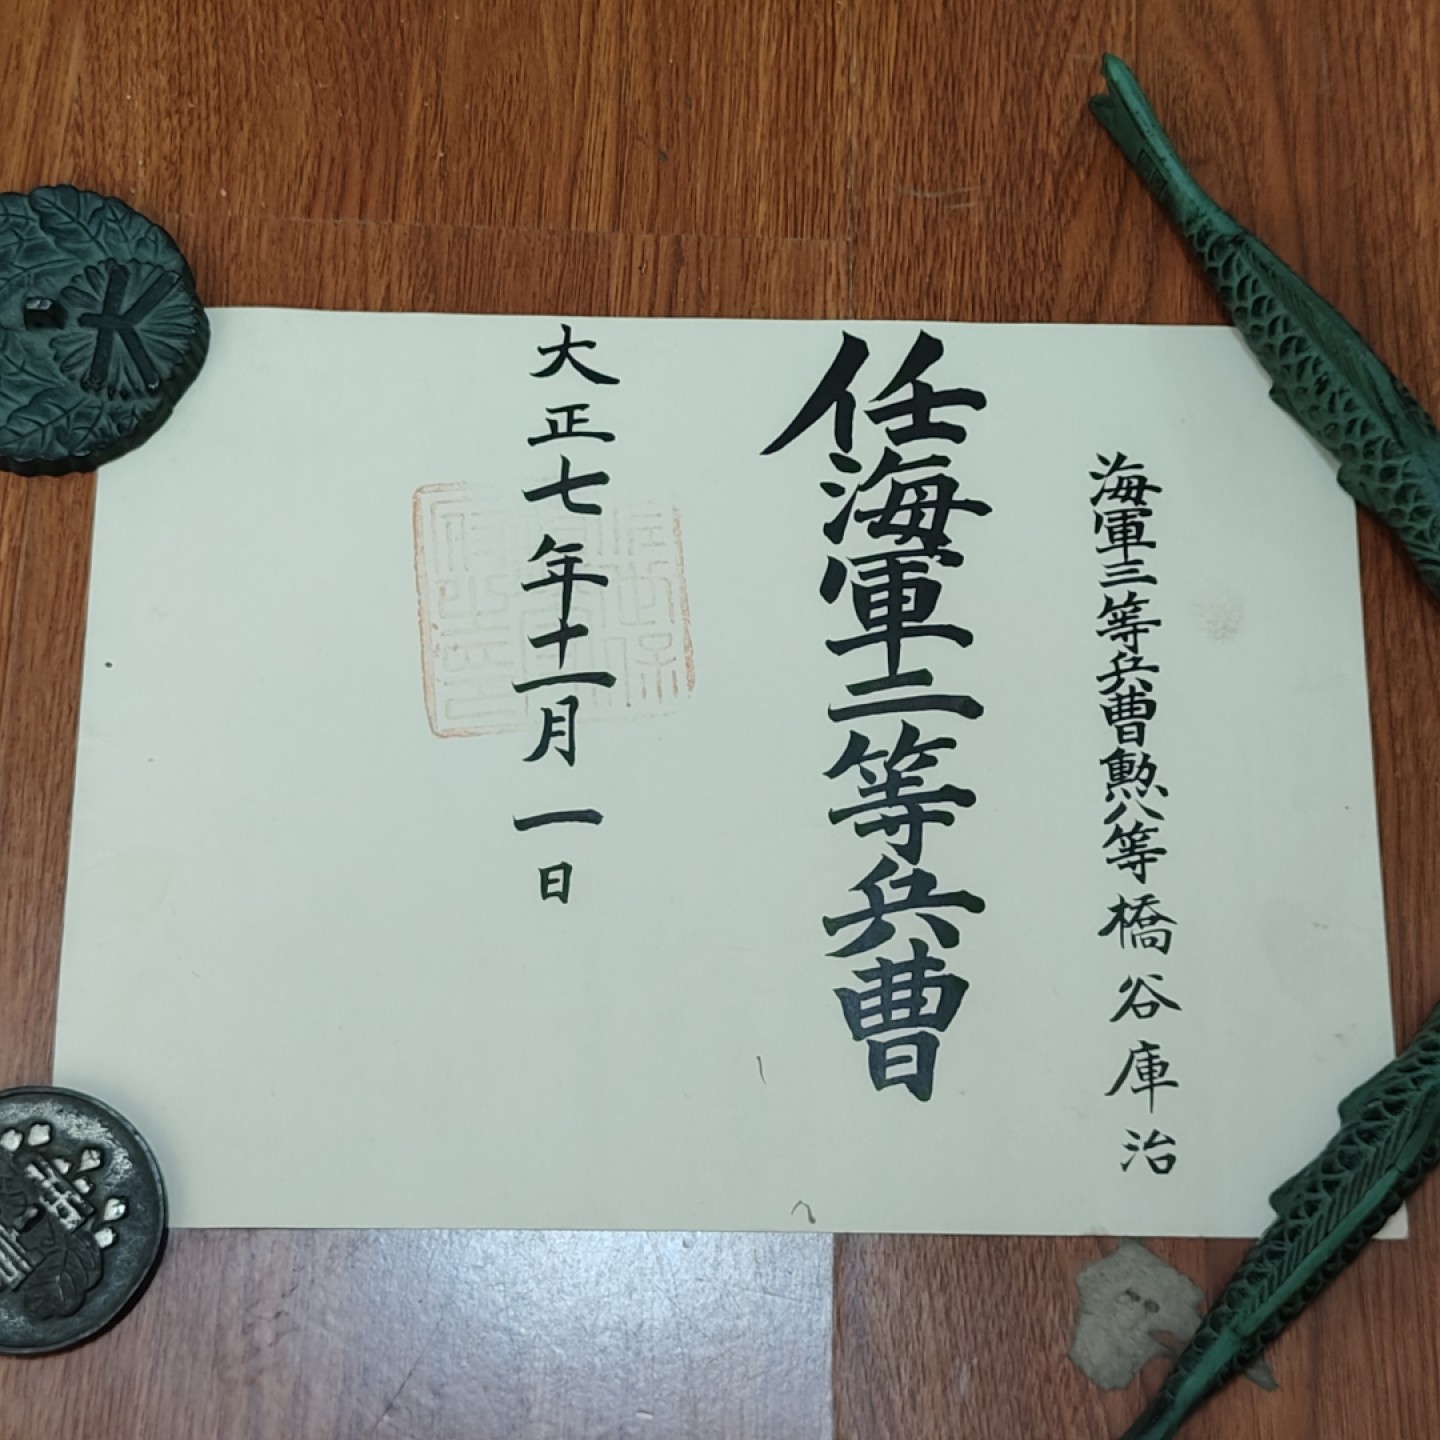 海軍三等兵曹勲八等橋谷庫治
任海軍二等兵曹
大正七年十一月一日